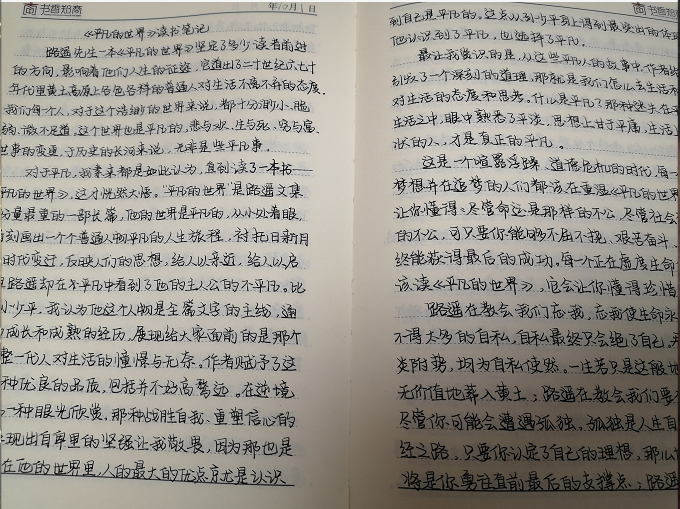 书香知商
年10月1日
《平凡的世界》读书笔记
路遥先生一本《平凡的世界》坚定了多少读者前进
的方向，影响着他们人生的征途，它道出了二十世纪六七十
年代里黄土高原上各色各样的普通人对生活不离不弃的态度。
我们每个人，对于这个浩渺的世界来说，都十分渺小、脆
弱、微不足道，这个世界也是平凡的，悲与欢、生与死、穷与富、
世事的变更，于历史的长河来说，无非是些平凡事。
对于平凡，我素来都是如此认为，直到读了一本书
平凡的世界》，这才恍然大悟。"平凡的世界"是路遥文集
分量最重的一部长篇，他的世界是平凡的，从小处着眼，
刻画出一个个普通人物平凡的人生旅程，衬托日新月
时代变迁，反映人们的思想，给人以亲近，给人以启
路遥却在不平凡中看到了他的主人公的不平凡。比
少平，我认为他这个人物是全篇文字的主线，通
成长和成熟的经历，展现给大家面前的是那个
整一代人对生活的憧憬与无奈。作者赋予了这
种优良的品质，包括并不好高骛远。在逆境
一种眼光欣赏，那种战胜自我、重塑信心的
现出自卑里的坚强让我敬畏，因为那也是
在他的世界里，人的最大的优点京尤是认识
书香知商
到自己是平凡的。这点从孙少平身上得到最突出的体现
他认识到了平凡，也选择了平凡。
最让我赏识的是，从这些平凡人的故事中，作者给
刻放了一个深刻的道理，那就是我们怎么去生活
对生活的态度和思考。什么是平凡？那种迷失在平
生活之中，眼中熟悉了平淡，思想上甘于平庸，生活上
状的人，才是真正的平凡。
这是一个喧嚣浮躁、道德危机的时代，每一
梦想并在追梦的人们都该在重温《平凡的世界
让你懂得：尽管命运是那样的不公，尽管社会
的不公，可只要你能够不屈不挠、艰苦奋斗、
终能获得最后的成功。每一个正在虚度生命
该读《平凡的世界》，它会让你懂得珍惜
路遥在教会我们忘我，忘我使生命永
不得太多的自私，自私最终只会绝了自己。
炎附势，均为自私使然。一生若只是这般地
无价值地葬入黄土；路遥在教会我们要
尽管你可能会遭遇孤独。孤独是人生自
经之路，只要你认定了自己的理想，那么
将是你勇往直前最后的支撑点；路遥